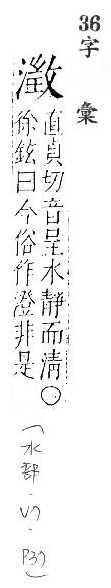 36
字彙
澂
直貞切音呈水靜而清○
徐鉉曰今俗作澄非是
(水部